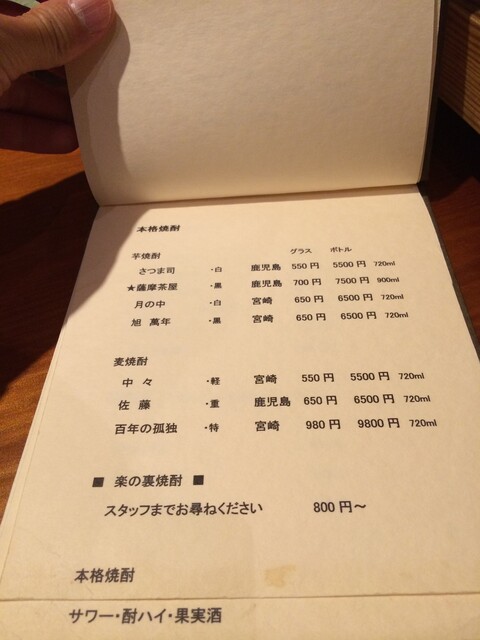 本格焼酎
グラス ボトル
芋焼酎
さつま司 ・白 鹿児島 550円 5500円 720ml
★薩摩茶屋 ・黒 鹿児島 700円 7500円 900ml
月の中 ・白 宮崎 650円 6500円 720ml
旭 萬年 ・黒 宮崎 650円 6500円 720ml
麦焼酎
中々 ・軽 宮崎 550円 5500円 720ml
佐藤 ・重 鹿児島 650円 6500円 720ml
百年の孤独 ・特 宮崎 980円 9800円 720ml
■ 楽の裏焼酎 ■
スタッフまでお尋ねください 800円～
本格焼酎
サワー・酎ハイ・果実酒